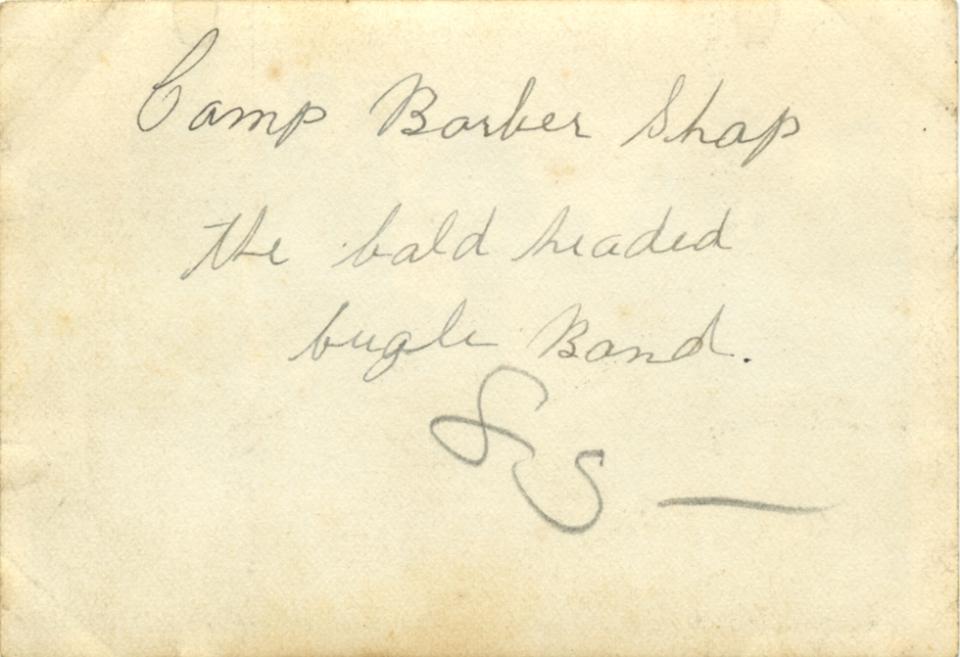 Camp Barber Shop
the bald headed
bugle Band.